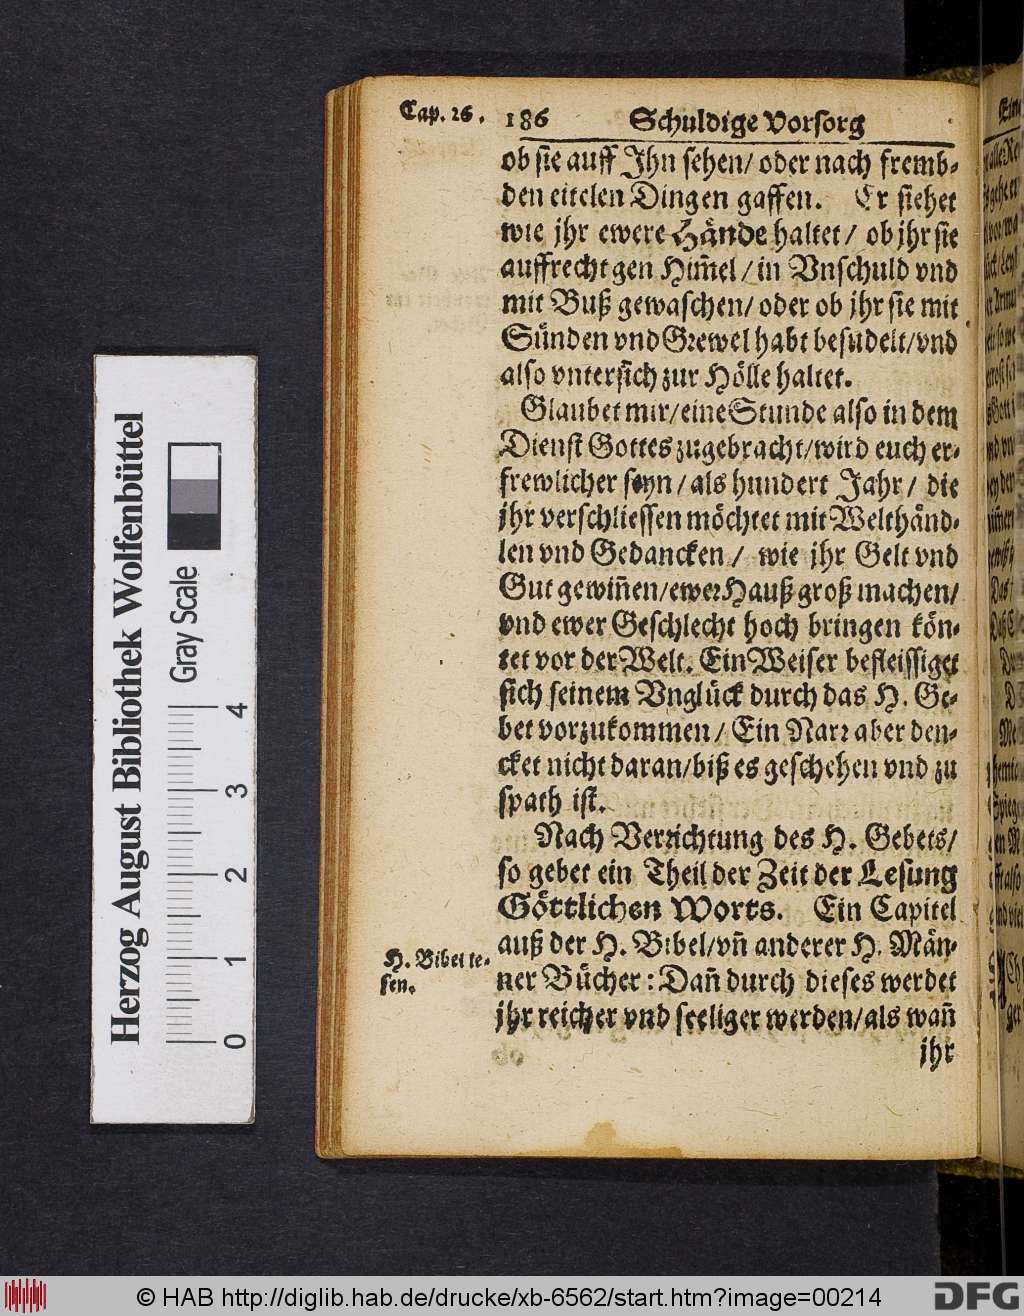 Cap. 26. 186 Schuldige Vorsorg
ob sie auff Ihn sehen/ oder nach fremb-
den eitelen Dingen gaffen. Er siehet
wie jhr ewere Hände haltet/ ob jhr sie
auffrecht gen Him̃el/ in Vnschuld vnd
mit Buß gewaschen/ oder ob jhr sie mit
Sünden vnd Grewel habt besudelt/ vnd
also vntersich zur Hölle haltet.
Glaubet mir/ eine Stunde also in dem
Dienst Gottes zugebracht/ wird euch er-
frewlicher seyn/ als hundert Jahr/ die
jhr verschliessen möchtet mit Welthänd-
len vnd Gedancken/ wie jhr Gelt vnd
Gut gewiñen/ ewer Hauß groß machen/
vnd ewer Geschlecht hoch bringen kön-
tet vor der Welt. Ein Weiser befleissiget
sich seinem Vnglück durch das H. Ge-
bet vorzukommen/ Ein Narr aber den-
cket nicht daran/ biß es geschehen vnd zu
spath ist.
Nach Verrichtung des H. Gebets/
so gebet ein Theil der Zeit der Lesung
Göttlichen Worts. Ein Capitel
auß der H. Bibel/ vñ anderer H. Män-
H. Bibel le-
sen.
ner Bücher: Dañ durch dieses werdet
jhr reicher vnd seeliger werden/ als wañ
jhr
Herzog August Bibliothek Wolfenbüttel
Gray Scale
0 1 2 3 4
© HAB http://diglib.hab.de/drucke/xb-6562/start.htm?image=00214
DFG